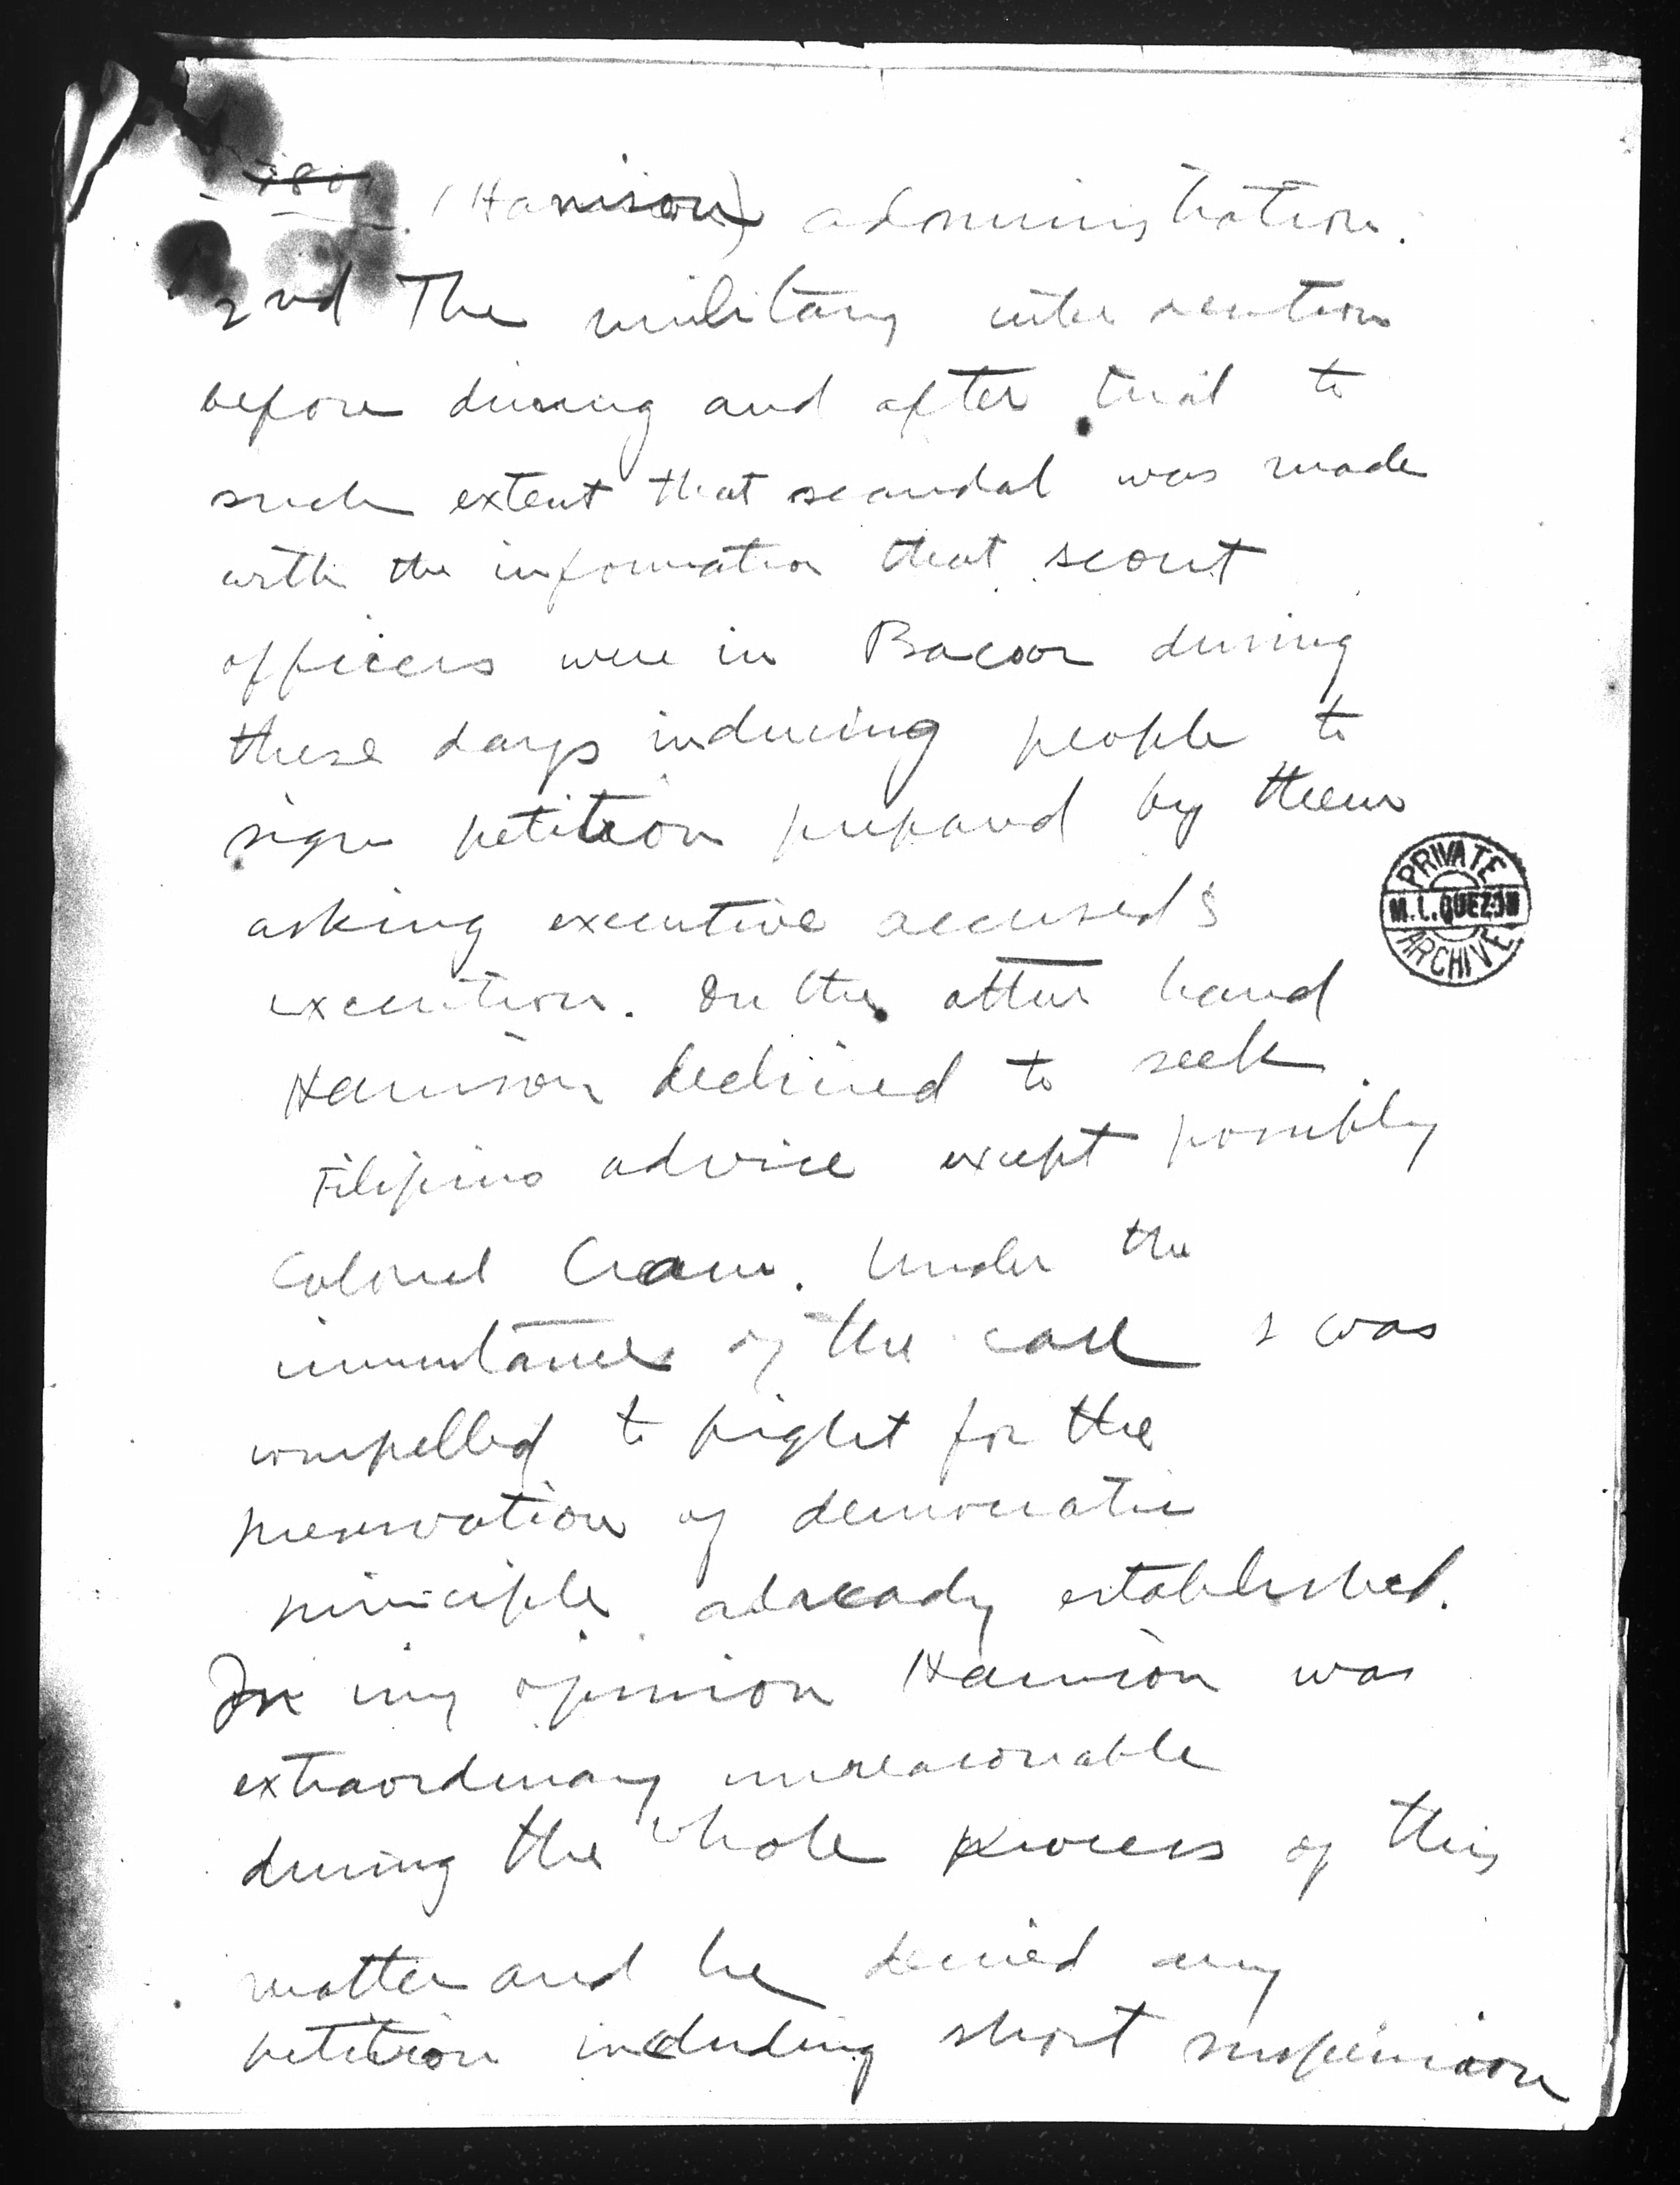 (Harrison) administration.
2nd The military intervention
before during and after trial to
such extent that scandal was made
with the information that scout
officers were in Bacoor during
these days inducing people to
sign petition prepared by them
asking executive accused's
execution. On the other hand
Harrison declined to seek
Filipino advice except possibly
Colonel Crame. Under the
circumstances of the case I was
compelled to fight for the
preservation of democratic
principle already established.
In my opinion Harrison was
extraordinary unreasonable
during the whole process of this
matter and he denied any
petition including short suspension
PRIVATE
M.L. QUEZON
ARCHIVE